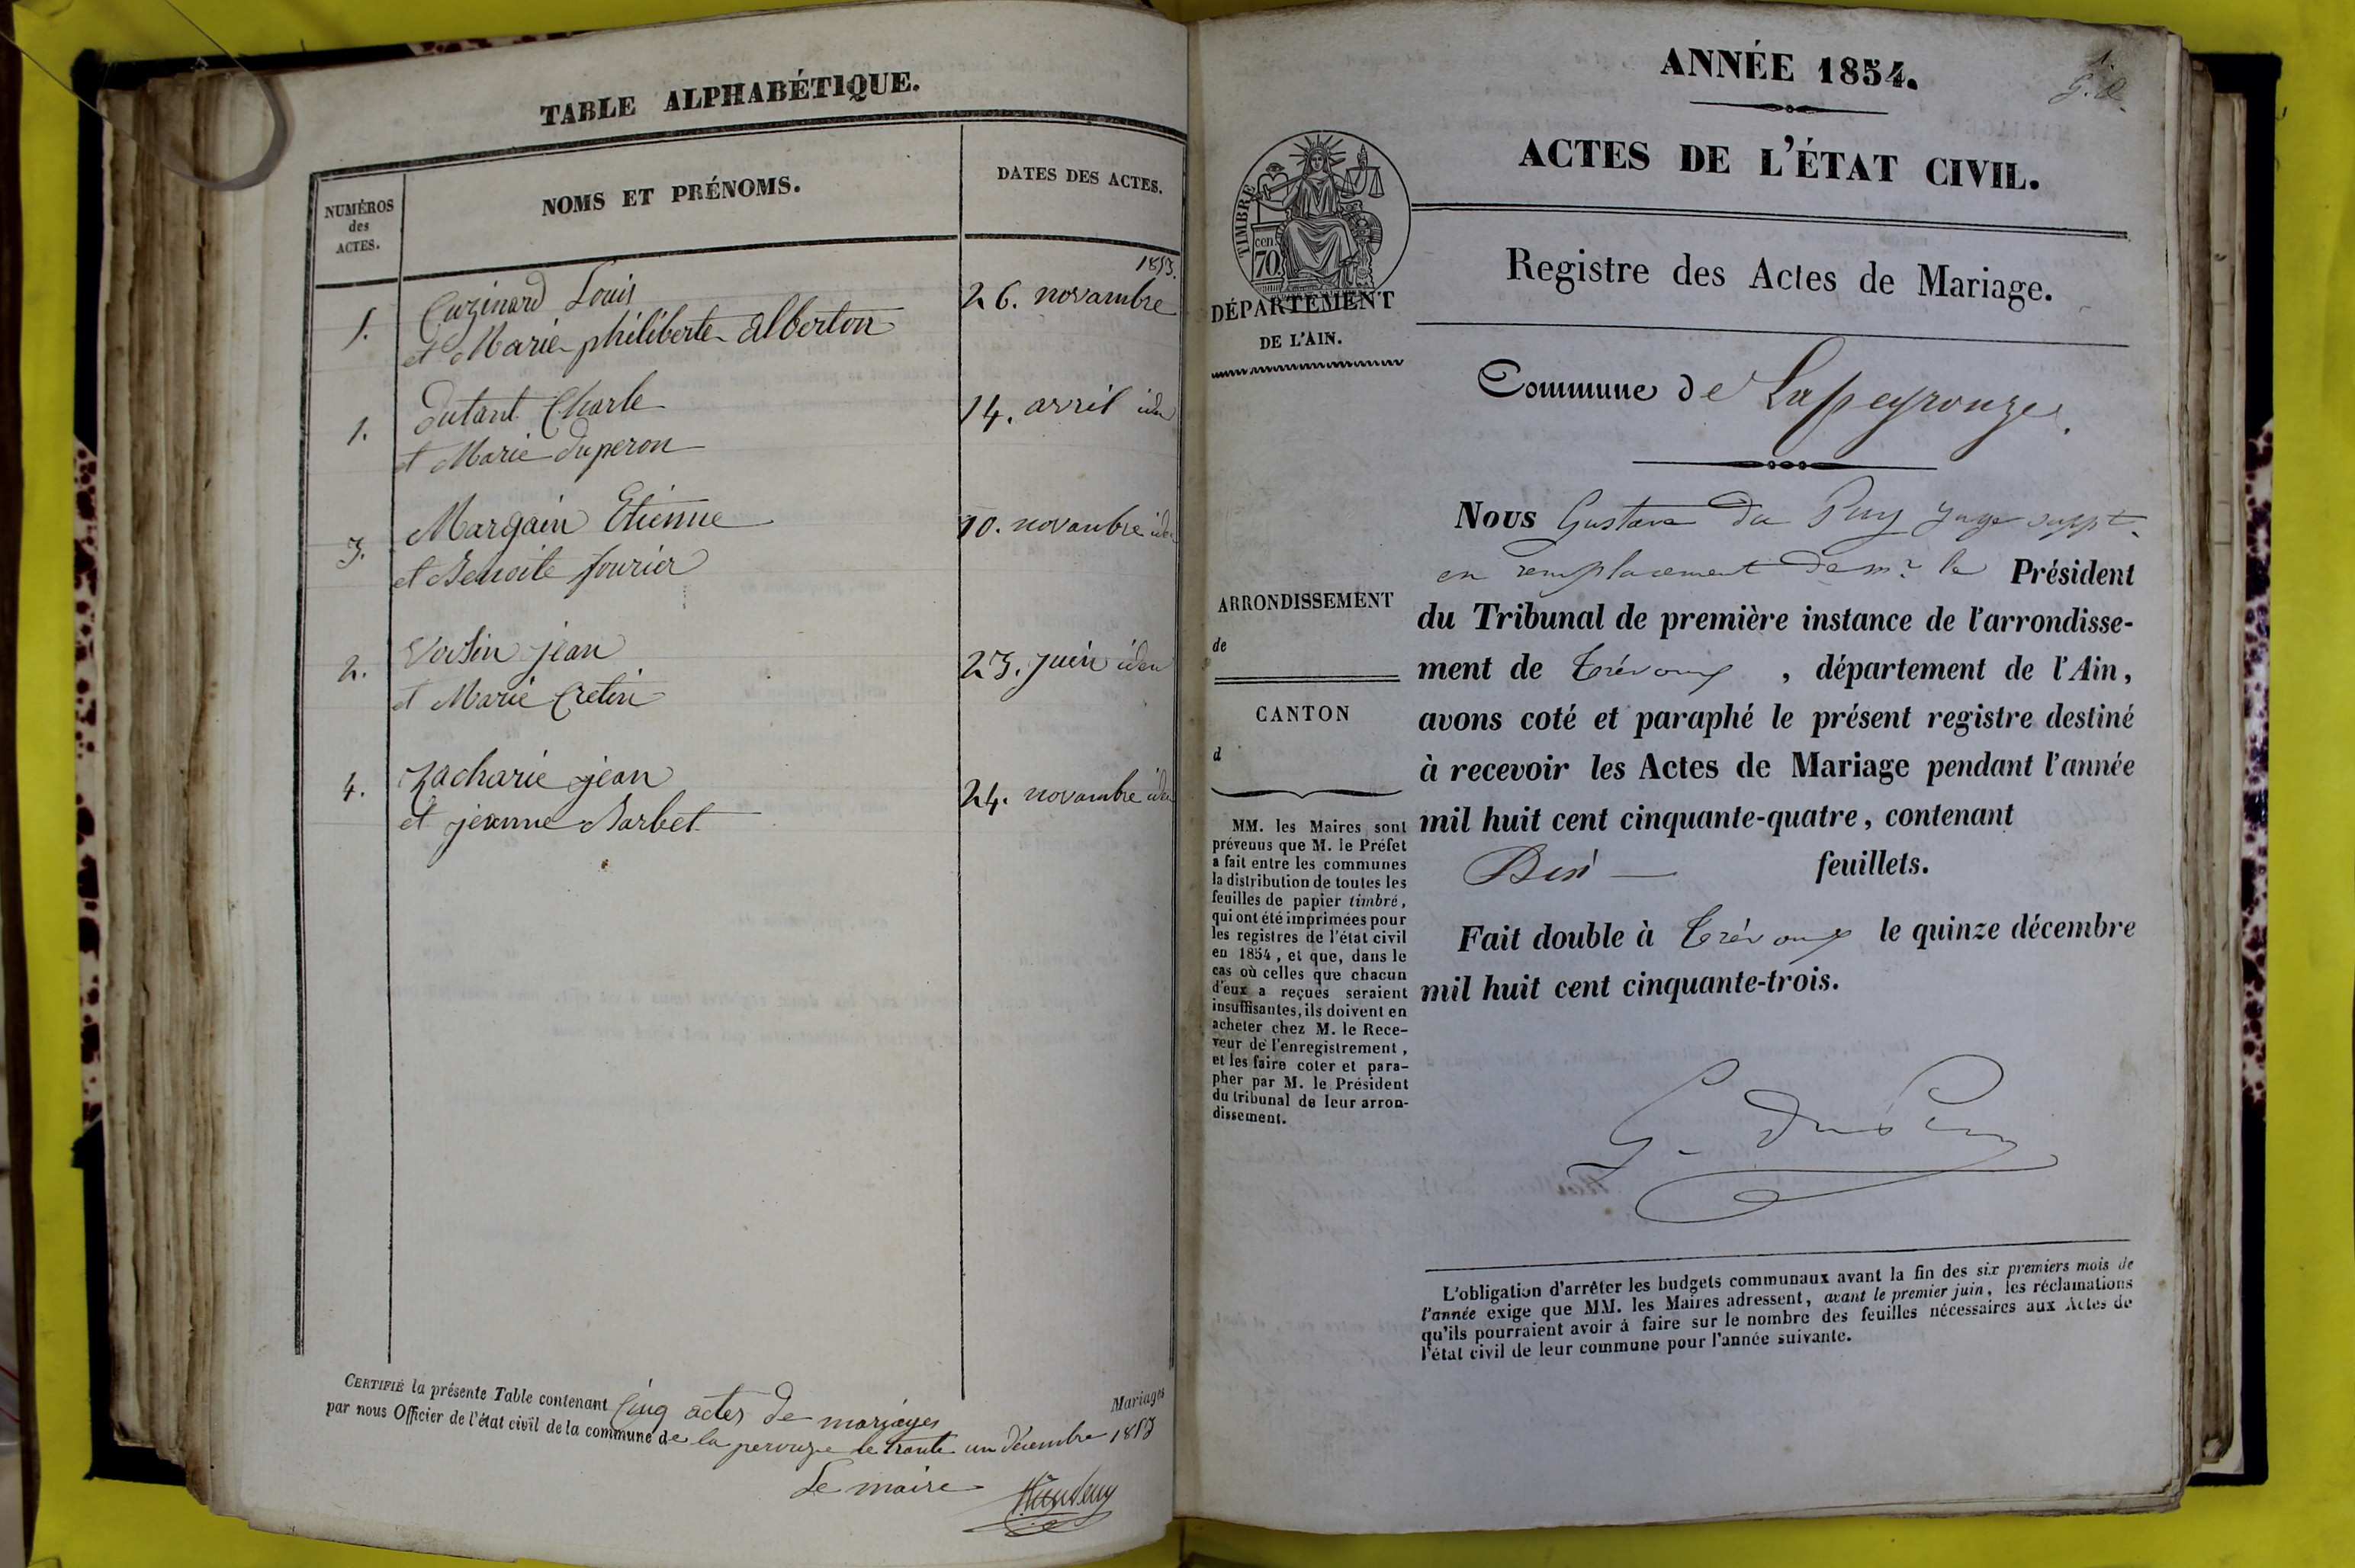 TABLE ALPHABÉTIQUE.
NUMÉROS
des
ACTES.
NOMS ET PRÉNOMS.
DATES DES ACTES.
1853.
Cuzinard Louis
et Marie philiberte alberton
26. novambre
1.
dutant Charle
et Marie duperon
14. avril idem
3.
Margain Etienne
et Benoite fourier
10. novambre idem
2.
Voisin jean
et Marie Cretin
23. juin idem
4.
Zacharie jean
et jeanne Barbet
24. novambre idem
CERTIFIÉ la présente Table contenant Cinq actes de mariages
par nous Officier de l'état civil de la commune de la perouze le trante un décembre 1853
Mariages
Le maire
ANNÉE 1854.
1.
ACTES DE L'ÉTAT CIVIL.
TIMBRE
70 cen.
DÉPARTEMENT
DE L'AIN.
Registre des Actes de Mariage.
Commune de Lapeyrouze.
ARRONDISSEMENT
de
CANTON
d
MM. les Maires sont
prévenus que M. le Préfet
a fait entre les communes
la distribution de toutes les
feuilles de papier timbré,
qui ont été imprimées pour
les registres de l'état civil
en 1854, et que, dans le
cas où celles que chacun
d'eux a reçues seraient
insuffisantes, ils doivent en
acheter chez M. le Rece-
veur de l'enregistrement,
et les faire coter et para-
pher par M. le Président
du tribunal de leur arron-
dissement.
Nous Gustave du Puy juge suppt.
en remplacement de mr. le Président
du Tribunal de première instance de l'arrondisse-
ment de Trévoux, département de l'Ain,
avons coté et paraphé le présent registre destiné
à recevoir les Actes de Mariage pendant l'année
mil huit cent cinquante-quatre, contenant
feuillets.
Fait double à Trévoux le quinze décembre
mil huit cent cinquante-trois.
L'obligation d'arrêter les budgets communaux avant la fin des six premiers mois de
l'année exige que MM. les Maires adressent, avant le premier juin, les réclamations
qu'ils pourraient avoir à faire sur le nombre des feuilles nécessaires aux Actes de
l'état civil de leur commune pour l'année suivante.